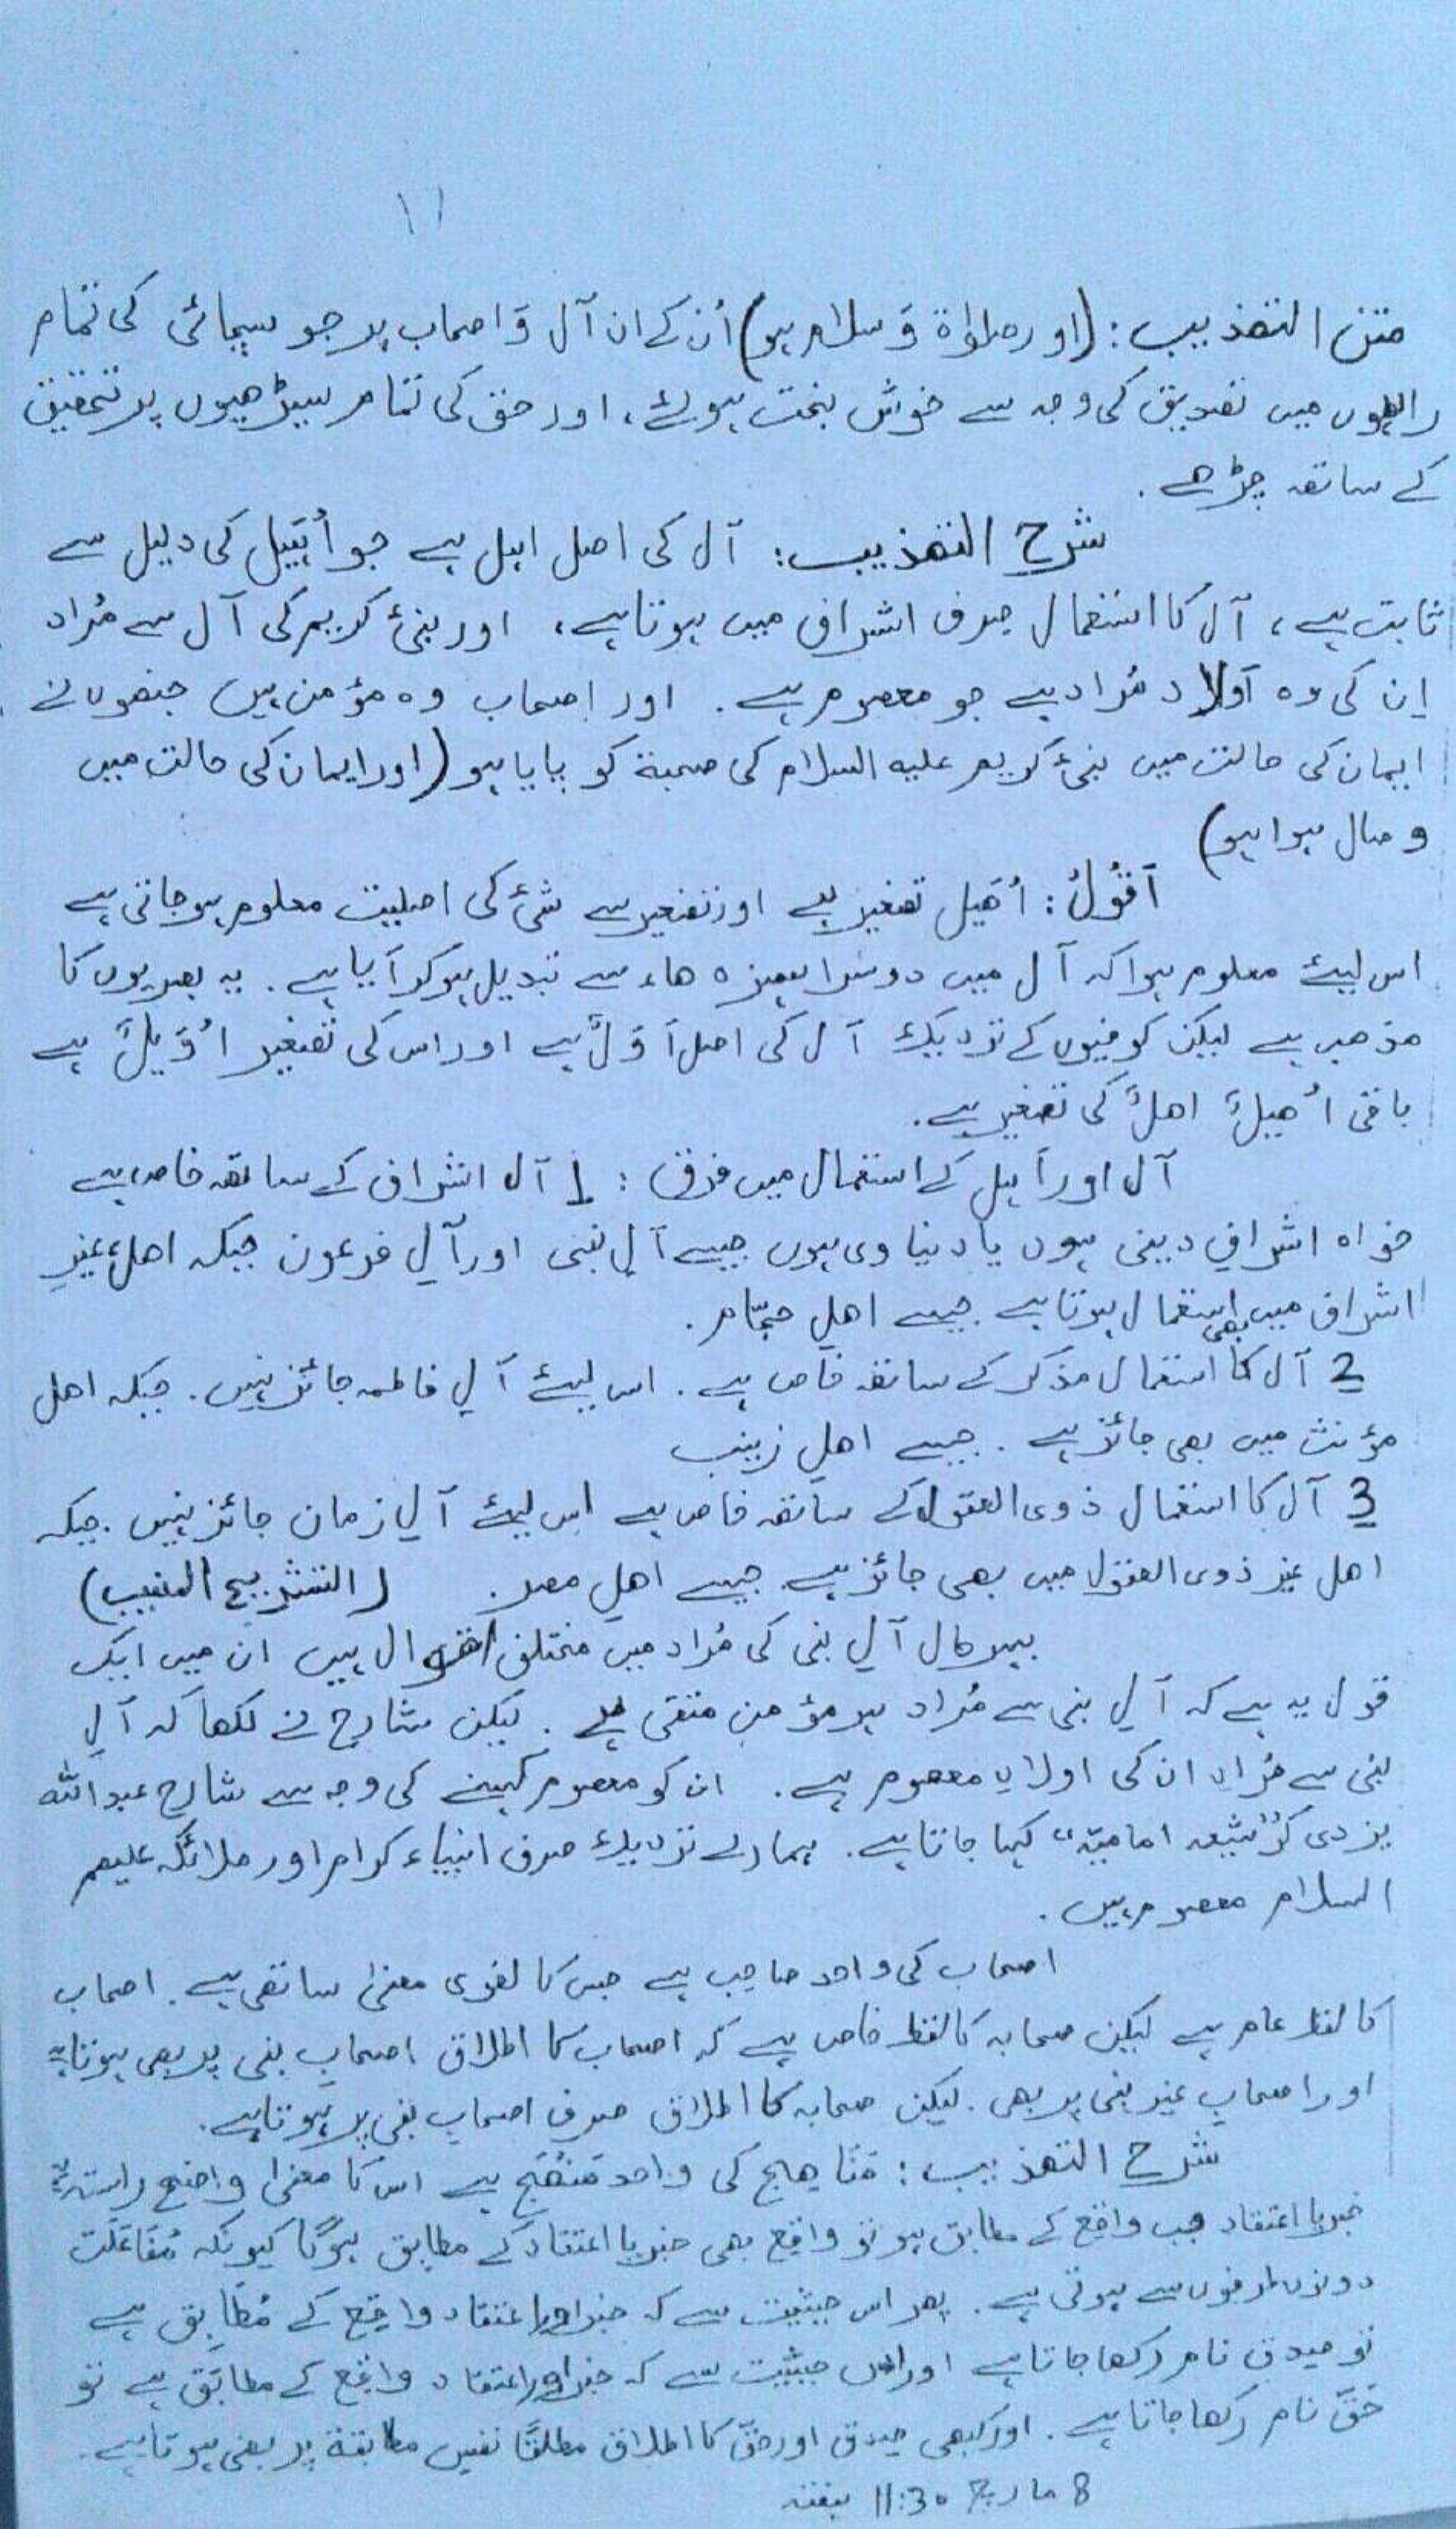 ۱۱
متن التھذیب: (اور صلوٰۃ وَ سلام ہو) اُن کے ان آل وَ اصحاب پر جو سچائی کی تمام
راہوں میں تصدیق کی وجہ سے خوش بخت ہوئے، اور حق کی تمام سیڑھیوں پر تحقیق
کے ساتھ چڑھے.
شرح التھذیب: آل کی اصل اہل ہے جو اُہَیل کی دلیل سے
ثابت ہے، آل کا استعمال صِرف اشراف میں ہوتا ہے، اور نبیٔ کریم کی آل سے مُراد
اِن کی وہ اَولاد مُراد ہے جو معصوم ہے. اور اصحاب وہ مؤمن ہیں جنھوں نے
ایمان کی حالت میں نبیٔ کریم علیہ السلام کی صحبۃ کو پایا ہو (اور ایمان کی حالت میں
وصال ہوا ہو)
اَقُولُ: اُھَیل تصغیر ہے اور تصغیر سے شیٔ کی اصلیت معلوم ہوجاتی ہے
اس لیئے معلوم ہوا کہ آل میں دوسرا ہمزہ ھاء سے تبدیل ہوکر آیا ہے. یہ بصریوں کا
مذھب ہے لیکن کوفیوں کے نزدیک آل کی اصل اَوَلٌ ہے اور اس کی تصغیر اُوَیلٌ ہے
باقی اُھیلٌ اھلٌ کی تصغیر ہے.
آل اور اَہل کے استعمال میں فرق: 1 آل اشراف کے ساتھ خاص ہے
خواہ اشرافِ دینی ہوں یا دنیاوی ہوں جیسے آلِ نبی اور آلِ فرعون جبکہ اھل غیرِ
اشراف میں بھی استعمال ہوتا ہے جیسے اھلِ حجّام.
2 آل کا استعمال مذکر کے ساتھ خاص ہے. اس لیئے آلِ فاطمہ جائز نہیں. جبکہ اھل
مؤنث میں بھی جائز ہے. جیسے اھلِ زینب
3 آل کا استعمال ذوی العقول کے ساتھ خاص ہے اس لیئے آلِ زمان جائز نہیں. جبکہ
اھل غیر ذوی العقول میں بھی جائز ہے جیسے اھلِ مصر. (التشریح المنیب)
بہرحال آلِ نبی کی مُراد میں مختلف اقوال ہیں ان میں ایک
قول یہ ہے کہ آلِ نبی سے مُراد ہر مؤمنِ متقی ہے. لیکن شارح نے لکھا کہ آلِ
نبی سے مُراد ان کی اولادِ معصوم ہے. ان کو معصوم کہنے کی وجہ سے شارح عبداللہ
یزدی کو "شیعہ امامیّہ" کہا جاتا ہے. ہمارے نزدیک صرف انبیاء کرام اور ملائکہ علیہم
السلام معصوم ہیں.
اصحاب کی واحد صاحِب ہے جس کا لغوی معنیٰ ساتھی ہے. اصحاب
کا لفظ عام ہے لیکن صحابہ کا لفظ خاص ہے کہ اصحاب کا اطلاق اصحابِ نبی پر بھی ہوتا ہے
اور اصحابِ غیرِ نبی پر بھی. لیکن صحابہ کا اطلاق صرف اصحابِ نبی پر ہوتا ہے.
شرح التھذیب: مَنَاھِج کی واحد مَنْھَج ہے اس کا معنیٰ واضح راستہ ہے
خبر یا اعتقاد جب واقع کے مطابق ہو تو واقع بھی خبر یا اعتقاد کے مطابق ہوگا کیونکہ مُفَاعَلَت
دونوں طرفوں سے ہوتی ہے. پھر اس حیثیت سے کہ خبر اور اعتقاد واقِع کے مُطابِق ہے
تو صِدق نام رکھا جاتا ہے اور اس حیثیت سے کہ خبر اور اعتقاد واقع کے مطابَق ہے تو
حَقّ نام رکھا جاتا ہے. اور کبھی صِدق اور حَقّ کا اطلاق مطلقًا نفسِ مطابقۃ پر بھی ہوتا ہے.
8 مارچ 11:30 ہفتہ